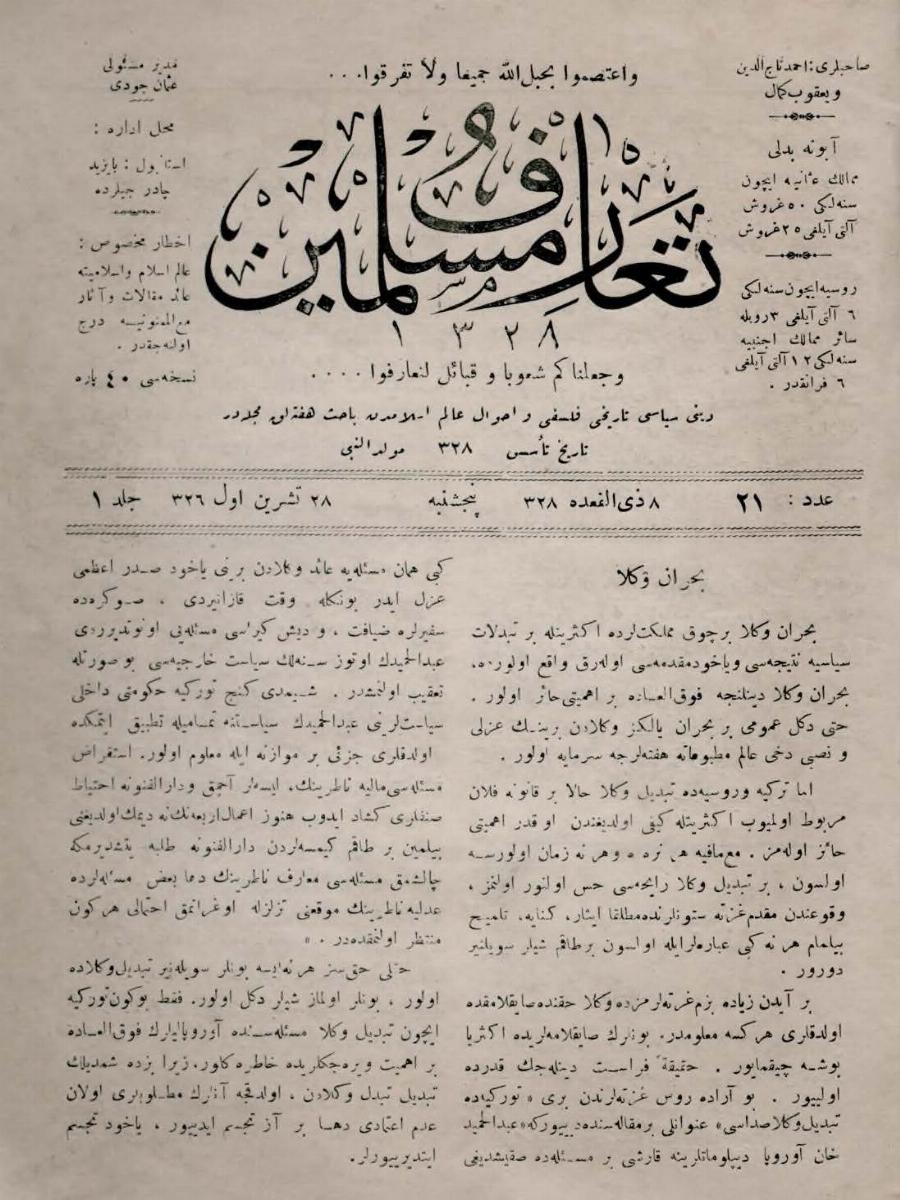 صاحبلری : احمد تاج الدین
و یعقوب کمال
آبونه بدلی
ممالك عثمانیه ایچون
سنه‌لکی ٥٠ غروش
آلتی آیلغی ٢٥ غروش
روسیه ایچون سنه‌لکی
٦ آلتی آیلغی ٣ روبله
سائر ممالك اجنبیه
سنه‌لکی ١٢ آلتی آیلغی
٦ فرانقدر .
واعتصموا بحبل الله جمیعا ولا تفرقوا . . .
تعارف مسلمین
١٣٢٨
وجعلناکم شعوبا و قبائل لتعارفوا . . . .
دینی سیاسی تاریخی فلسفی و احوال عالم اسلامدن باحث هفته‌لق مجله‌در
تاریخ تأسیس ٣٢٨ مولد النبی
مدیر مسئولی
عثمان جودی
محل اداره :
استانبول : بایزید
چادر جیلرده
اخطار مخصوص :
عالم اسلام واسلامیته
عائد مقالات و آثار
مع الممنونیه درج
اولنه‌جقدر .
نسخه‌سی ٤٠ پاره
عدد : ٢١ ٨ ذی القعده ٣٢٨ پنجشنبه ٢٨ تشرین اول ٣٢٦ جلد ١
بحران وکلا
بحران وکلا بر چوق مملکت‌لرده اکثریتله بر تبدلات
سیاسیه نتیجه‌سی و یاخود مقدمه‌سی اوله‌رق واقع اولور .
بحران وکلا دینلنجه فوق العاده بر اهمیتی حائز اولور .
حتی دکل عمومی بر بحران یالکز وکلادن برینك عزلی
و نصبی دخی عالم مطبوعاته هفته‌لرجه سرمایه اولور .
اما ترکیه وروسیه‌ده تبدیل وکلا حالا بر قانونه فلان
مربوط اولمیوب اکثریتله کیفی اولدیغندن او قدر اهمیتی
حائز اوله‌مز . مع‌مافیه هر نره ه وهر نه زمان اولورسه
اولسون ، بر تبدیل وکلا رایحه‌سی حس اولنور اولنمز ،
وقوعندن مقدم غزته ستونلرنده مطلقا ایشار، کنایه، تلمیح
بیلمام هر نه کبی عباره‌لرایله اولسون بر طاقم شیلر سویلنیر
دورور .
بر آیدن زیاده بزم غزته‌لرمزده وکلا حقنده صایقلامقده
اولدقلری هرکسه معلومدر. بونلرك صایقلامه‌لریده اکثریا
بوشه چیقمایور . حقیقة فراست دینله‌جك قدرده
اولییور . بو آراده روس غزته‌لرندن بری « تورکیه‌ده
تبدیل وکلا صداسی» عنوانلی بر مقاله‌سنده دییورکه «عبدالحمید
خان آوروپا دیپلوماتلرینه قارشی بر مسئله‌ده صقیشدیغی
کبی همان مسئله‌یه عائد وکلادن برینی یاخود صدر اعظمی
عزل ایدر بونکله وقت قازانیردی . صوکره‌ده
سفیرلره ضیافت ، و دیش کیراسی مسئله‌یی اونوتدیرردی
عبدالحمیدك اوتوز سنه‌لك سیاست خارجیه‌سی بو صورتله
تعقیب اولنمشدر . شیمدی کنج تورکیه حکومتی داخلی
سیاستلرنی عبدالحمیدك سیاستنه تمامیله تطبیق ایتمکده
اولدقلری جزئی بر موازنه ایله معلوم اولور. استقراض
مسئله‌سی مالیه ناظرینك، لیسه‌لر آچمق و دارالفنونه احتیاط
صنفلری کشاد ایدوب هنوز اعمال اربعه‌نك نه دیمك اولدیغنی
بیلمین بر طاقم کیمسه‌لردن دارالفنونه طلبه یتشدیرمکه
چالشمق مسئله‌سی معارف ناظرینك دها بعض مسئله‌لرده
عدلیه ناظرینك موقعنی تزلزله اوغراتمق احتمالی هرکون
منتظر اولنمقده‌در . »
حقلی حق‌سز هر نه‌ایسه بونلر سویله‌نیر تبدیل وکلاده
اولور ، بونلر اولماز شیلر دکل اولور. فقط بوکون تورکیه
ایچون تبدیل وکلا مسئله‌سنده آوروپالیلرك فوق العاده
بر اهمیت ویره‌جکلریده خاطره کلور، زیرا بزده شمدیلك
تبدیل تبدل وکلادن ، اولدقجه آنلرك مطلوبلری اولان
عدم اعتمادی دها بر آز تجسم ایدییور ، یاخود تجسم
ایتدیرییورلر.